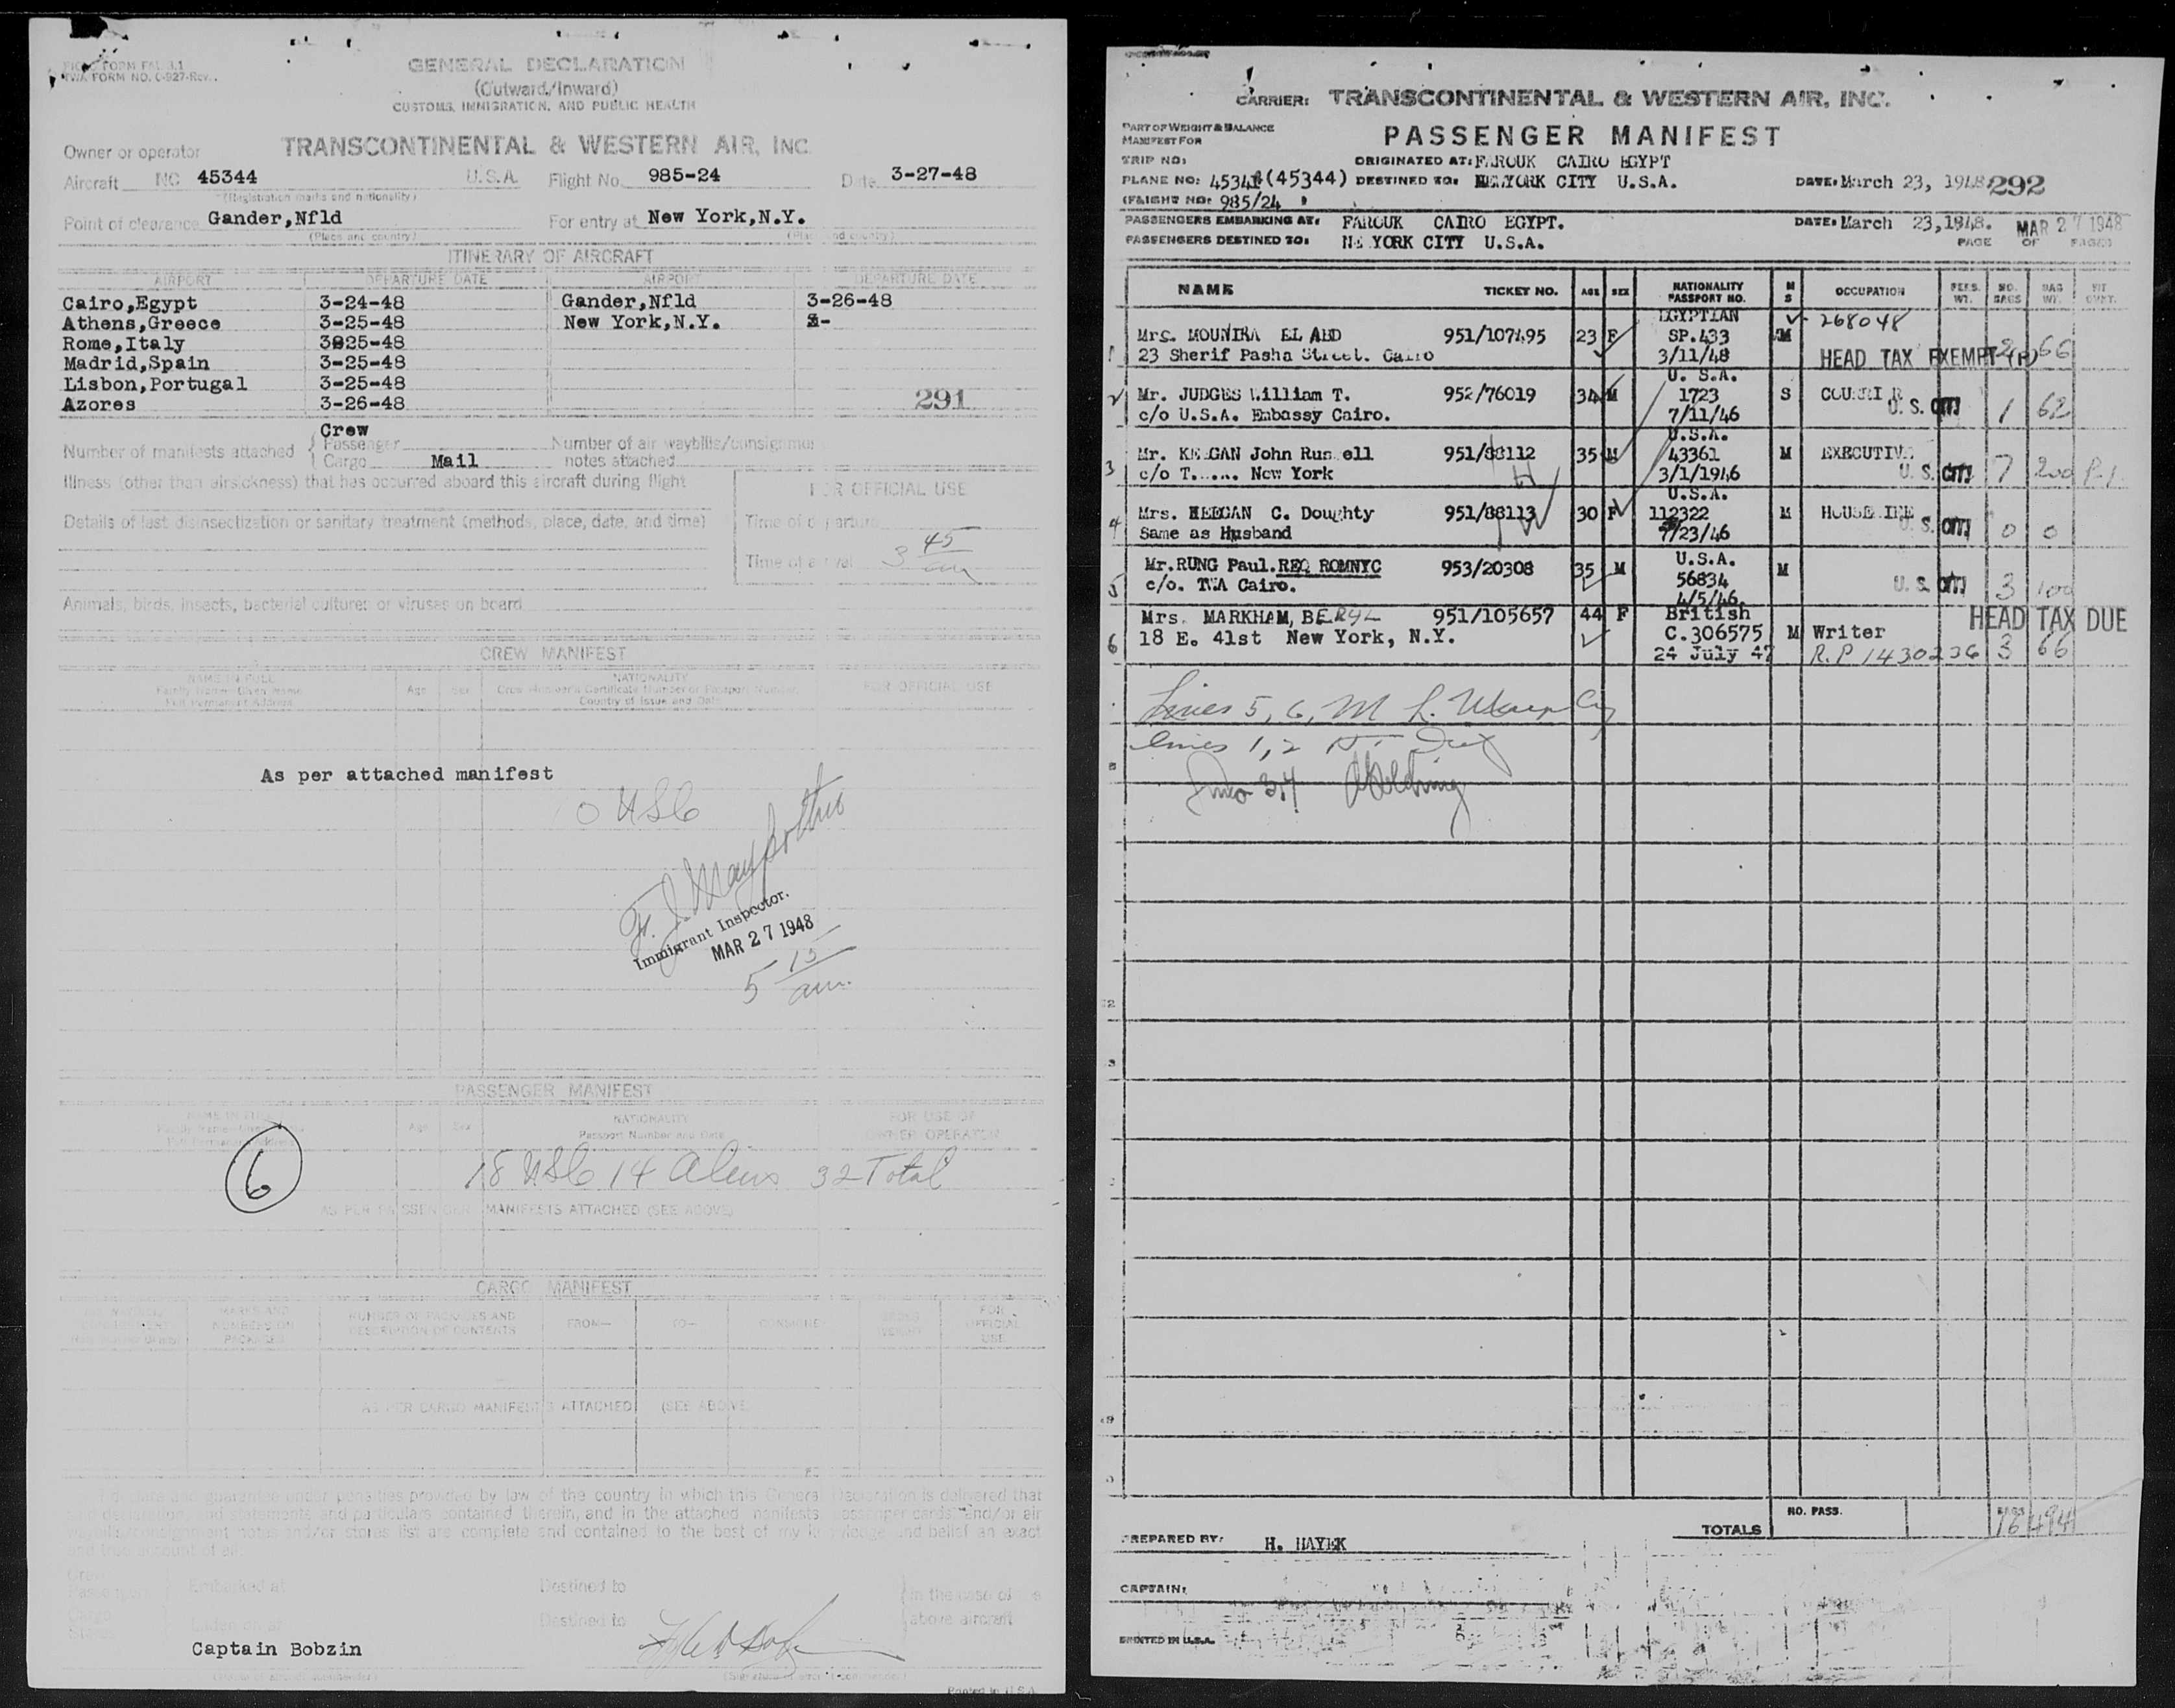 TWA FORM NO. C-927-Rev.
GENERAL DECLARATION
(Outward/Inward)
CUSTOMS, IMMIGRATION, AND PUBLIC HEALTH
Owner or operator TRANSCONTINENTAL & WESTERN AIR, INC.
Aircraft NC 45344 U.S.A. Flight No. 985-24 Date 3-27-48
(Registration marks and nationality)
Point of clearance Gander,Nfld For entry at New York,N.Y.
(Place and country) (Place and country)
ITINERARY OF AIRCRAFT
AIRPORT DEPARTURE DATE AIRPORT DEPARTURE DATE
Cairo,Egypt 3-24-48 Gander,Nfld 3-26-48
Athens,Greece 3-25-48 New York,N.Y. 3-
Rome,Italy 3825-48
Madrid,Spain 3-25-48
Lisbon,Portugal 3-25-48
Azores 3-26-48 291
Crew
Number of manifests attached { Passenger Number of air waybills/consignment
Cargo Mail notes attached
Illness (other than airsickness) that has occurred aboard this aircraft during flight
FOR OFFICIAL USE
Details of last disinsectization or sanitary treatment (method, place, date, and time)
Time of departure
Time of arrival 3 45 am
Animals, birds, insects, bacterial cultures or viruses on board
CREW MANIFEST
NAME IN FULL
Family Name—Given Name
Full Permanent Address
Age Sex
NATIONALITY
Crew Member's Certificate Number or Passport Number
Country of Issue and Date
FOR OFFICIAL USE
As per attached manifest
Immigrant Inspector.
MAR 27 1948
5 15 am.
PASSENGER MANIFEST
NAME IN FULL
Full Permanent Address
Age Sex
NATIONALITY
Passport Number and Date
FOR USE OF
OWNER OPERATOR
6
18 USC 14 Aliens 32 Total
AS PER PASSENGER MANIFESTS ATTACHED (SEE ABOVE)
CARGO MANIFEST
MARKS AND
NUMBERS ON
PACKAGES
NUMBER OF PACKAGES AND
DESCRIPTION OF CONTENTS
FROM— TO— CONSIGNEE
GROSS
WEIGHT
FOR
OFFICIAL
USE
AS PER CARGO MANIFESTS ATTACHED (SEE ABOVE)
I declare and guarantee under penalties provided by law of the country in which this General Declaration is delivered that
declaration and statements and particulars contained therein, and in the attached manifests passenger cards and/or air
notes and/or stores list are complete and contained to the best of my knowledge and belief an exact
and true account of all
Crew
Passengers Embarked at Destined to in the case of
Cargo
Stores Laden on at Destined to above aircraft
Captain Bobzin
Printed in U.S.A.
CARRIER: TRANSCONTINENTAL & WESTERN AIR, INC.
PART OF WEIGHT & BALANCE
MANIFEST FOR
PASSENGER MANIFEST
TRIP NO: ORIGINATED AT: FAROUK CAIRO EGYPT
PLANE NO: 45344 (45344) DESTINED TO: NEW YORK CITY U.S.A. DATE: March 23, 1948. 292
(FLIGHT NO: 985/24
PASSENGERS EMBARKING AT: FAROUK CAIRO EGYPT. DATE: March 23,1948. MAR 27 1948
PASSENGERS DESTINED TO: NEW YORK CITY U.S.A. PAGE OF PAGES
NAME TICKET NO. AGE SEX NATIONALITY PASSPORT NO. M S OCCUPATION PERS. WT. NO. BAGS BAG WT. FIT CUVT.
EGYPTIAN 268048
1 Mrs. MOUNIRA EL ABD 951/107495 23 F SP.433 M
23 Sherif Pasha Street. Cairo 3/11/48 HEAD TAX EXEMPT (P) 2 66
U. S.A.
2 Mr. JUDGES William T. 952/76019 34 M 1723 S COURRIER
c/o U.S.A. Embassy Cairo. 7/11/46 U. S. CITY 1 62
U.S.A.
3 Mr. KEEGAN John Russell 951/88112 35 M 43361 M EXECUTIVE
c/o T.W.A. New York 3/1/1946 U. S. CITY 7 200 P.1
U.S.A.
4 Mrs. KEEGAN C. Doughty 951/88113 30 F 112322 M HOUSEWIFE
Same as Husband 7/23/46 U. S. CITY 0 0
U.S.A.
5 Mr.RUNG Paul.REQ ROMNYC 953/20308 35 M 56834 M
c/o. TWA Cairo. 4/5/46. U. S. CITY 3 100
6 Mrs. MARKHAM, BERYL 951/105657 44 F British HEAD TAX DUE
18 E. 41st New York, N.Y. C.306575 M Writer
24 July 47 R.P 1430236 3 66
Lines 5, 6,
Lines 1, 2
Lines 3,4
NO. PASS. BAGS
TOTALS 16 494
PREPARED BY: H. HAYEK
CAPTAIN:
PRINTED IN U.S.A.